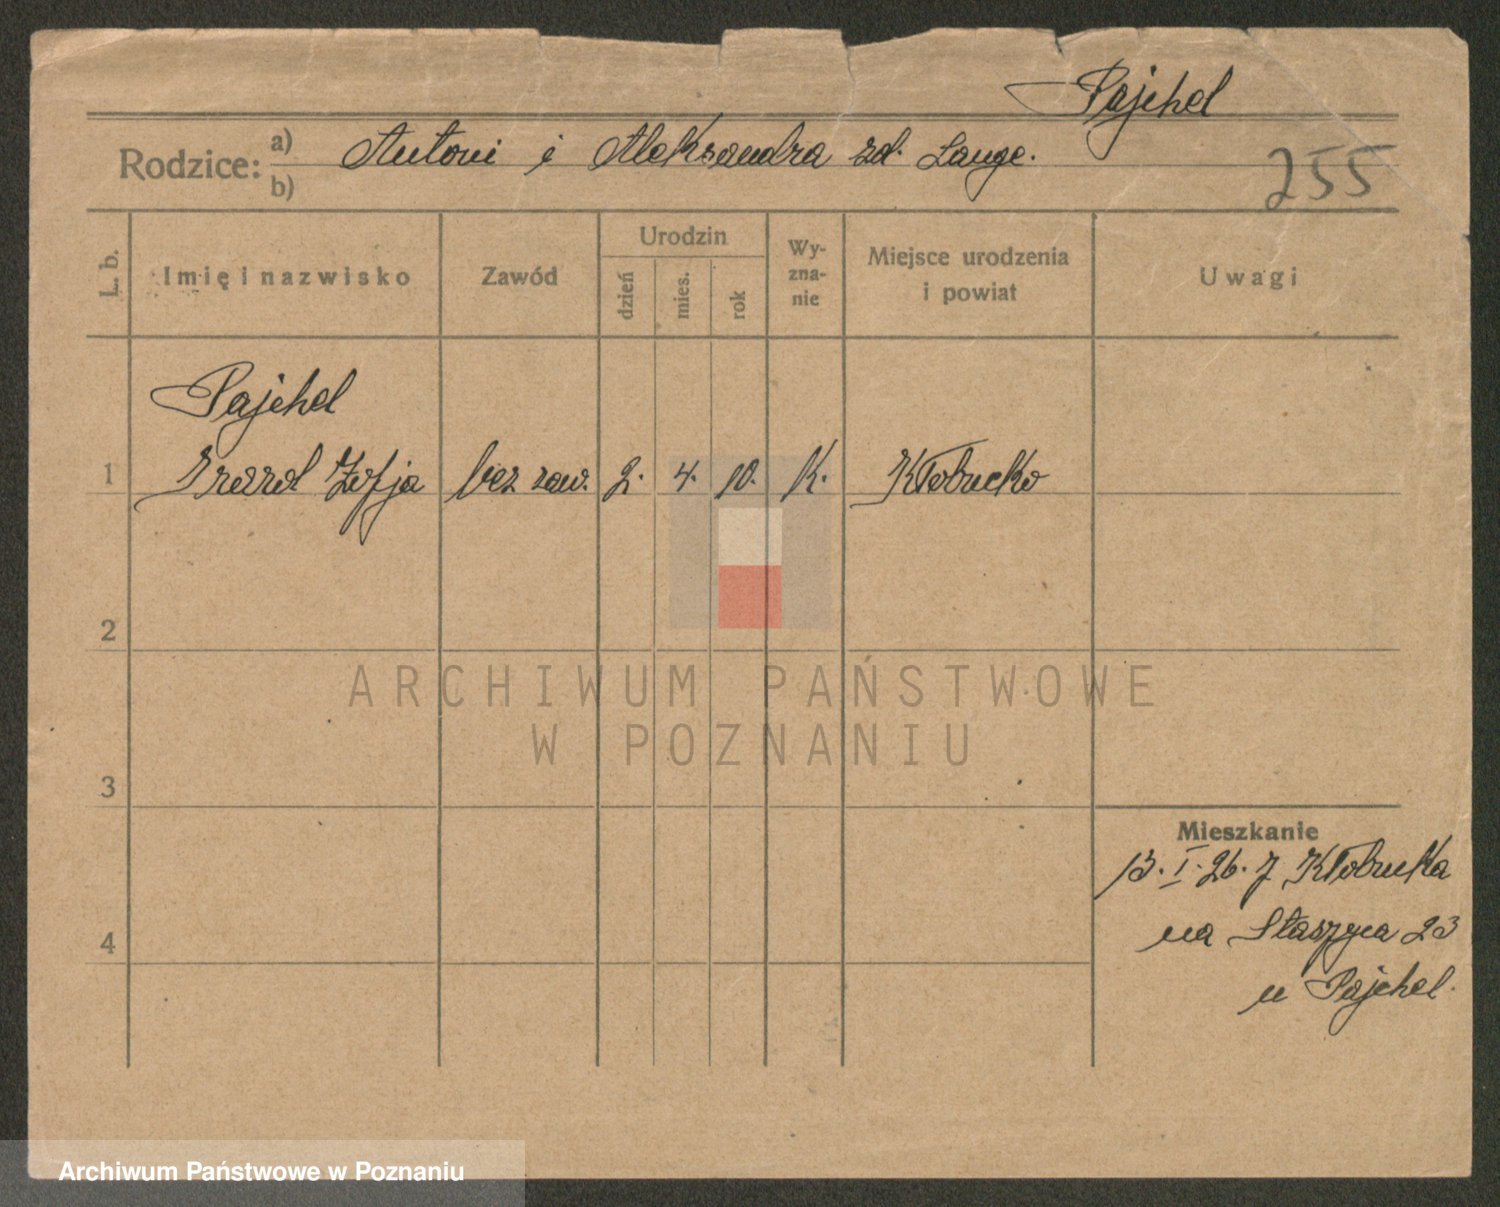 Pajchel
Rodzice: a) Antoni i Aleksandra zd. Lange.
b)
255
L. b.
Imię i nazwisko
Zawód
Urodzin
dzień
mies.
rok
Wy-
zna-
nie
Miejsce urodzenia
i powiat
Uwagi
Pajchel
1 Zofja bez zaw. 2. 4. 10. K. Kłobucko
2
3
4
Mieszkanie
13. I. 26. z Kłobucka
na Staszyca 23
u Pajchel.
ARCHIWUM PAŃSTWOWE
W POZNANIU
Archiwum Państwowe w Poznaniu